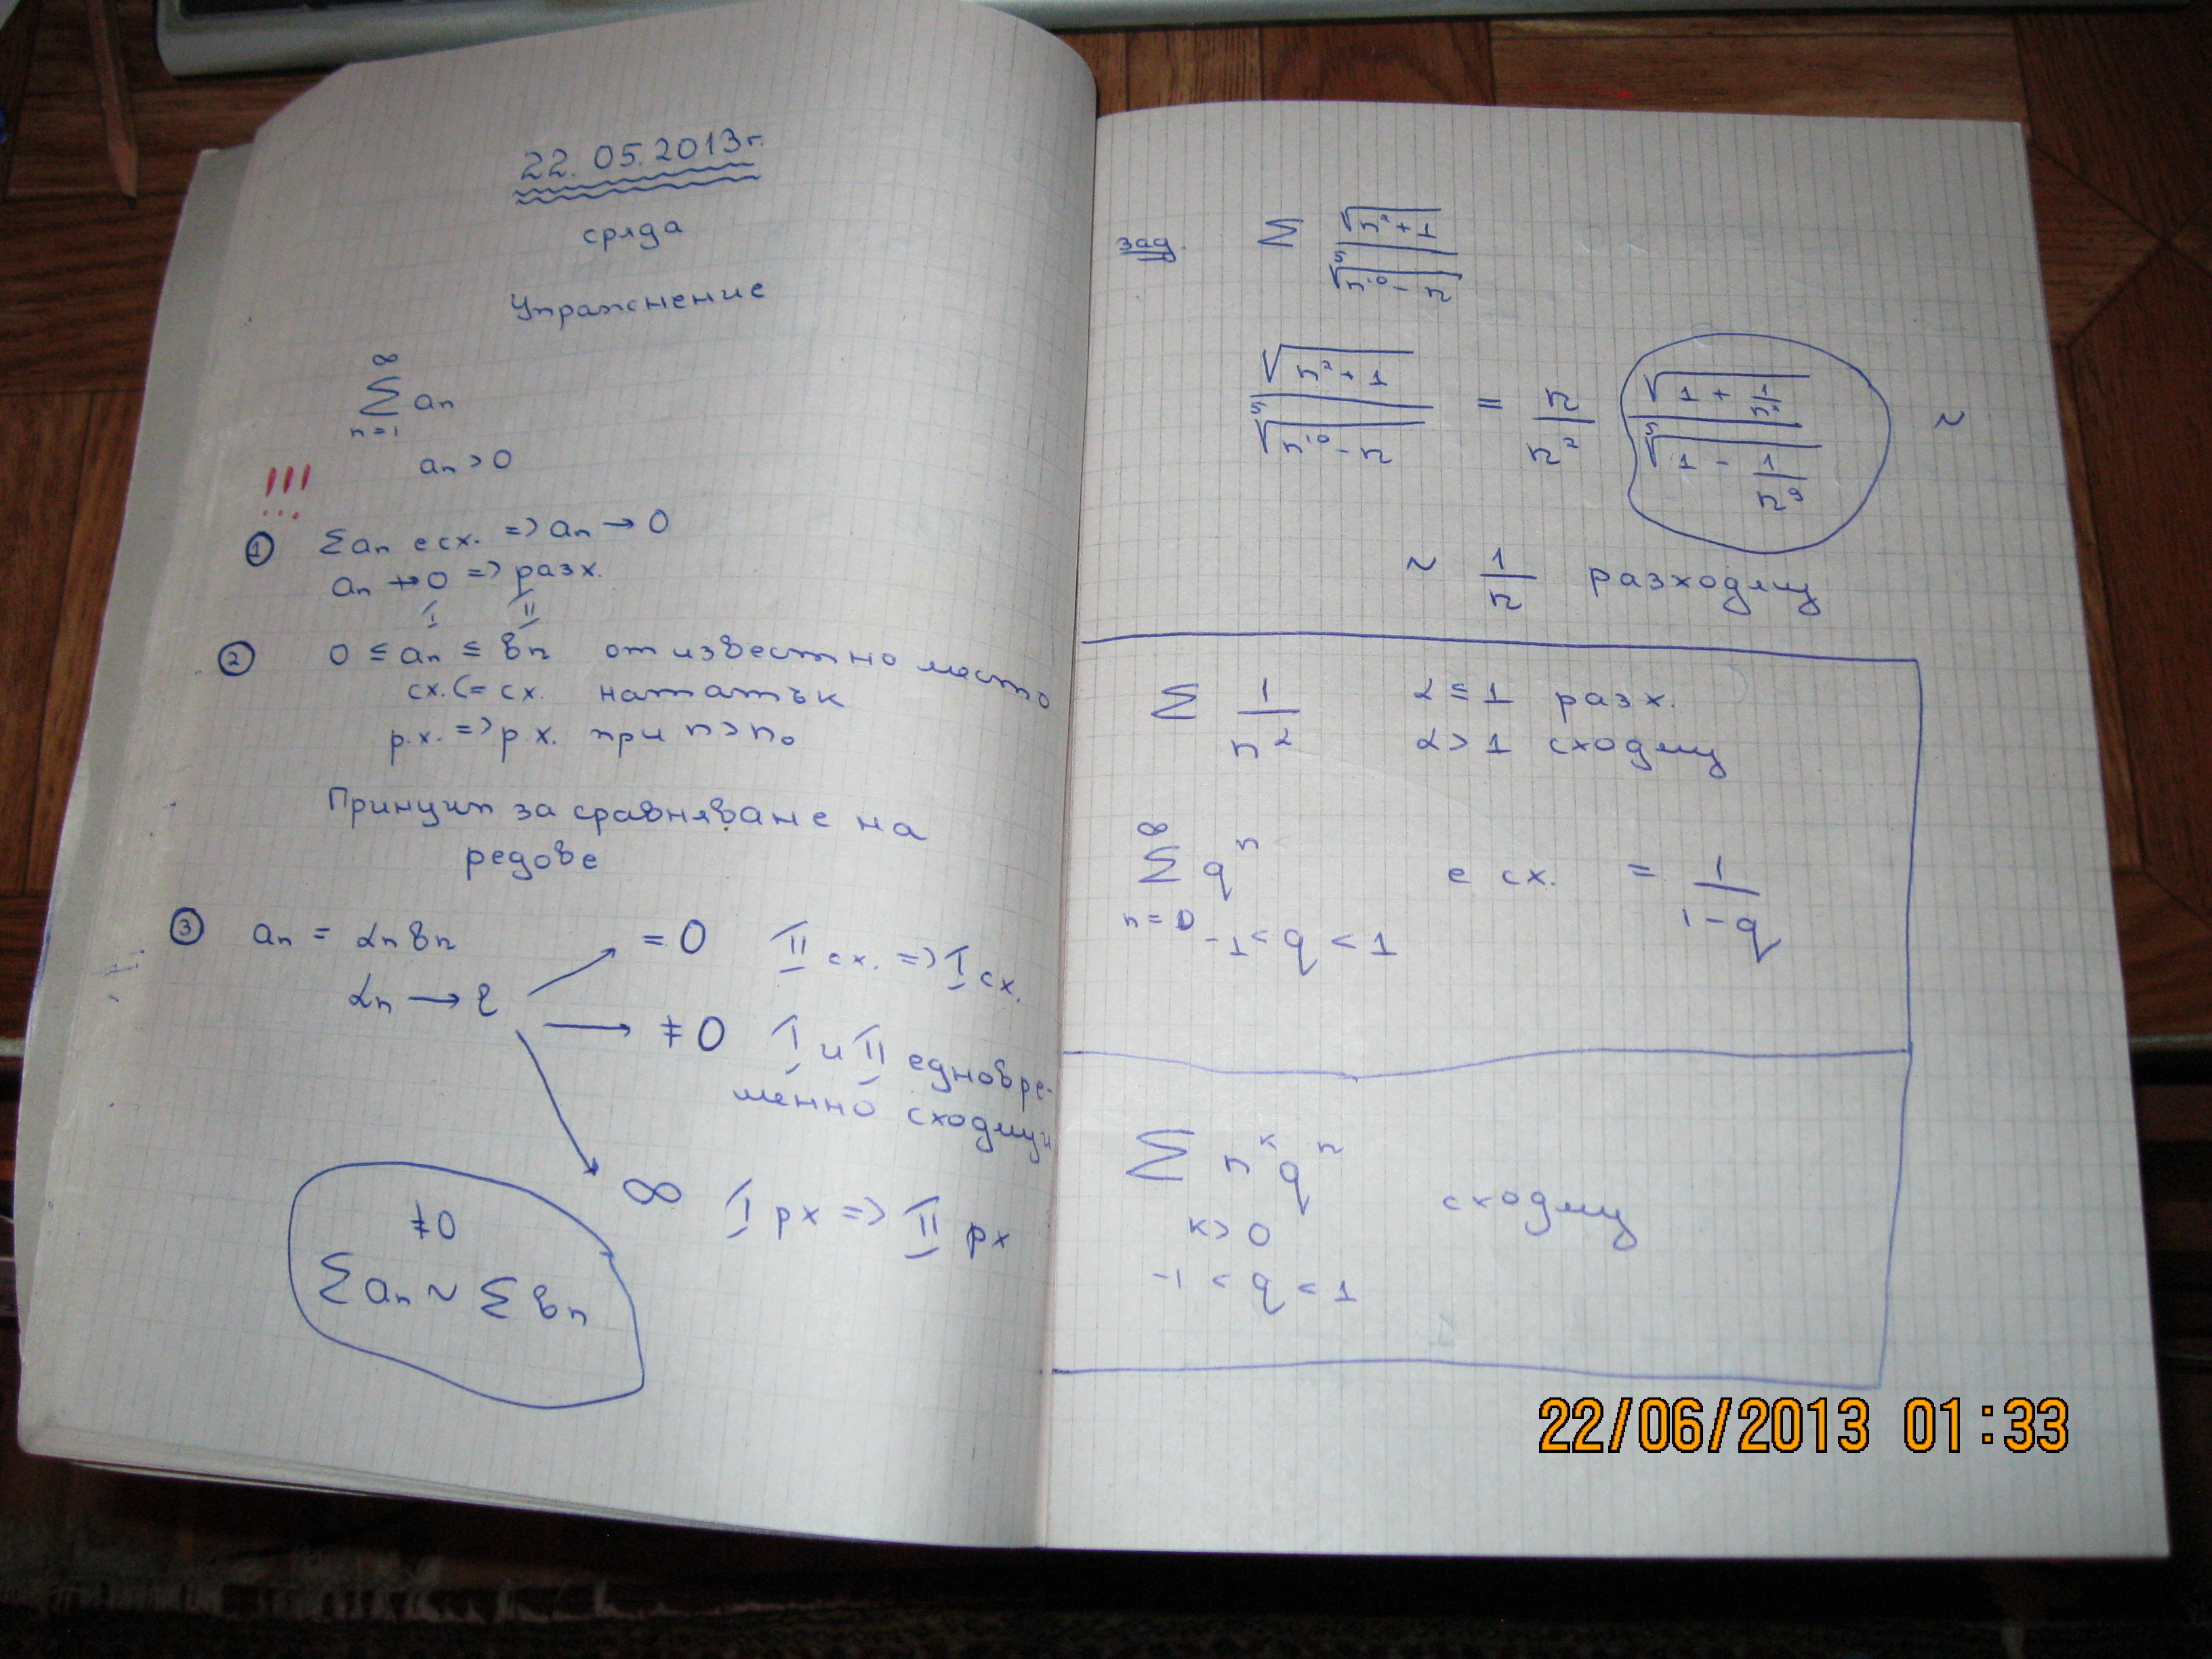 22.05.2013г.
сряда
Упражнение
∞
∑ an
n=1
an > 0
!!!
① ∑an е сх. => an → 0
an ↛ 0 => разх.
I II
② 0 ≤ an ≤ bn от известно място
сх. <= сх. нататък
р.х. => р.х. при n > n₀
Принцип за сравняване на
редове
③ an = αn bn = 0 II сх. => I сх.
αn → l
≠ 0 I и II едновре-
менно сходящи
∞ I рх => II рх
≠0
∑an ~ ∑bn
зад. ∑ √(n²+1) / ⁵√(n¹⁰ - n)
√(n²+1) / ⁵√(n¹⁰ - n) = n/n² √(1 + 1/n²) / ⁵√(1 - 1/n⁹) ~
~ 1/n разходящ
∑ 1/n^α α ≤ 1 разх.
α > 1 сходящ
∞
∑ qⁿ е сх. = 1/(1-q)
n=0
-1 < q < 1
∑ n^k qⁿ сходящ
k > 0
-1 < q < 1
22/06/2013 01:33